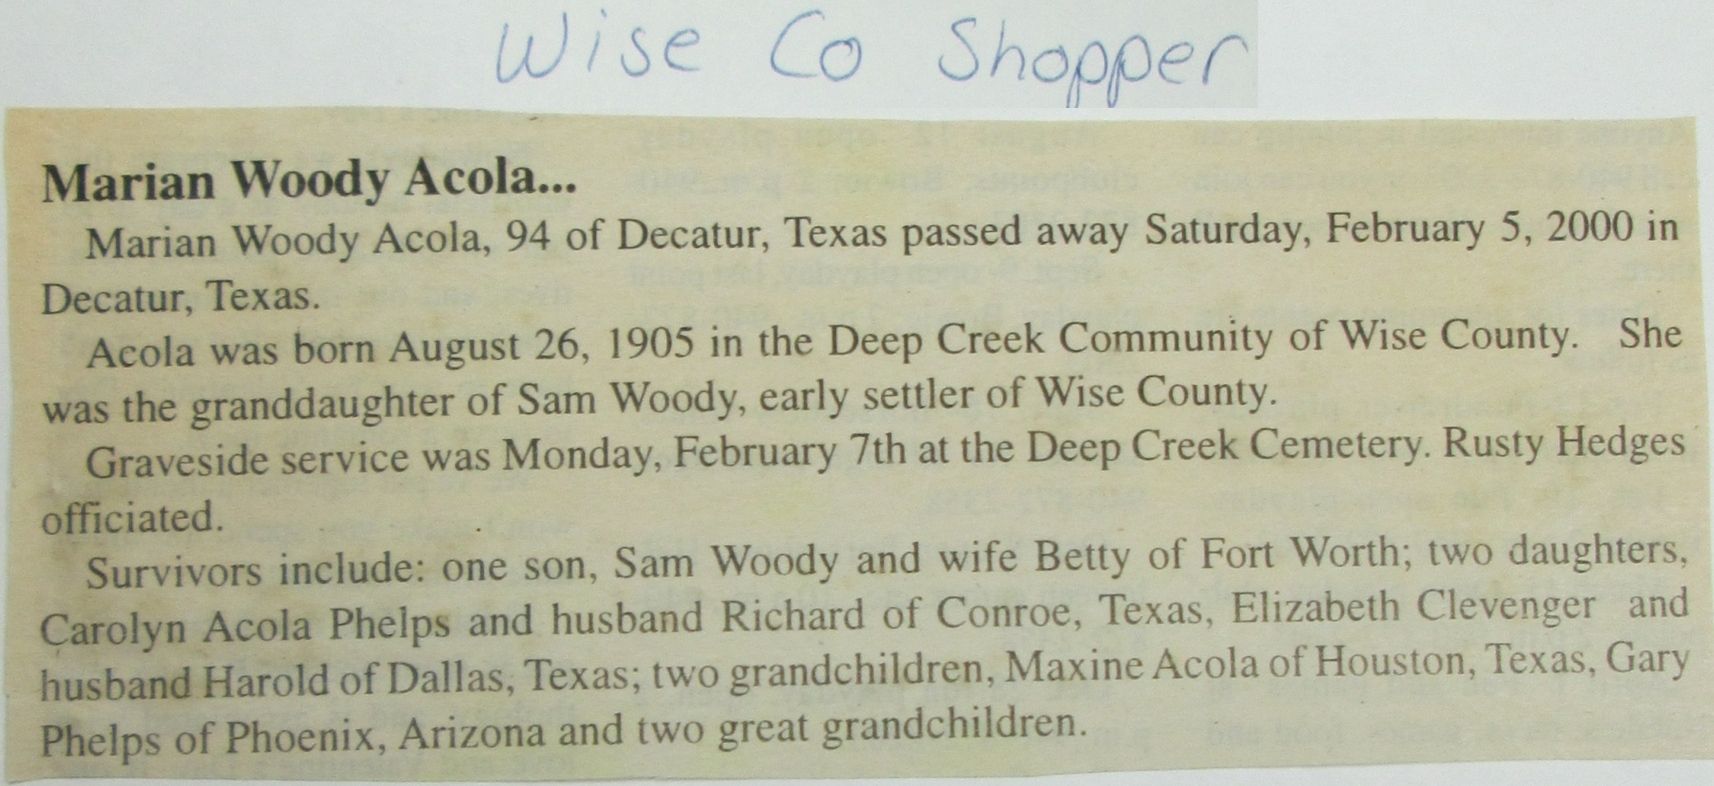 Wise Co Shopper
Marian Woody Acola...
Marian Woody Acola, 94 of Decatur, Texas passed away Saturday, February 5, 2000 in
Decatur, Texas.
Acola was born August 26, 1905 in the Deep Creek Community of Wise County. She
was the granddaughter of Sam Woody, early settler of Wise County.
Graveside service was Monday, February 7th at the Deep Creek Cemetery. Rusty Hedges
officiated.
Survivors include: one son, Sam Woody and wife Betty of Fort Worth; two daughters,
Carolyn Acola Phelps and husband Richard of Conroe, Texas, Elizabeth Clevenger and
husband Harold of Dallas, Texas; two grandchildren, Maxine Acola of Houston, Texas, Gary
Phelps of Phoenix, Arizona and two great grandchildren.